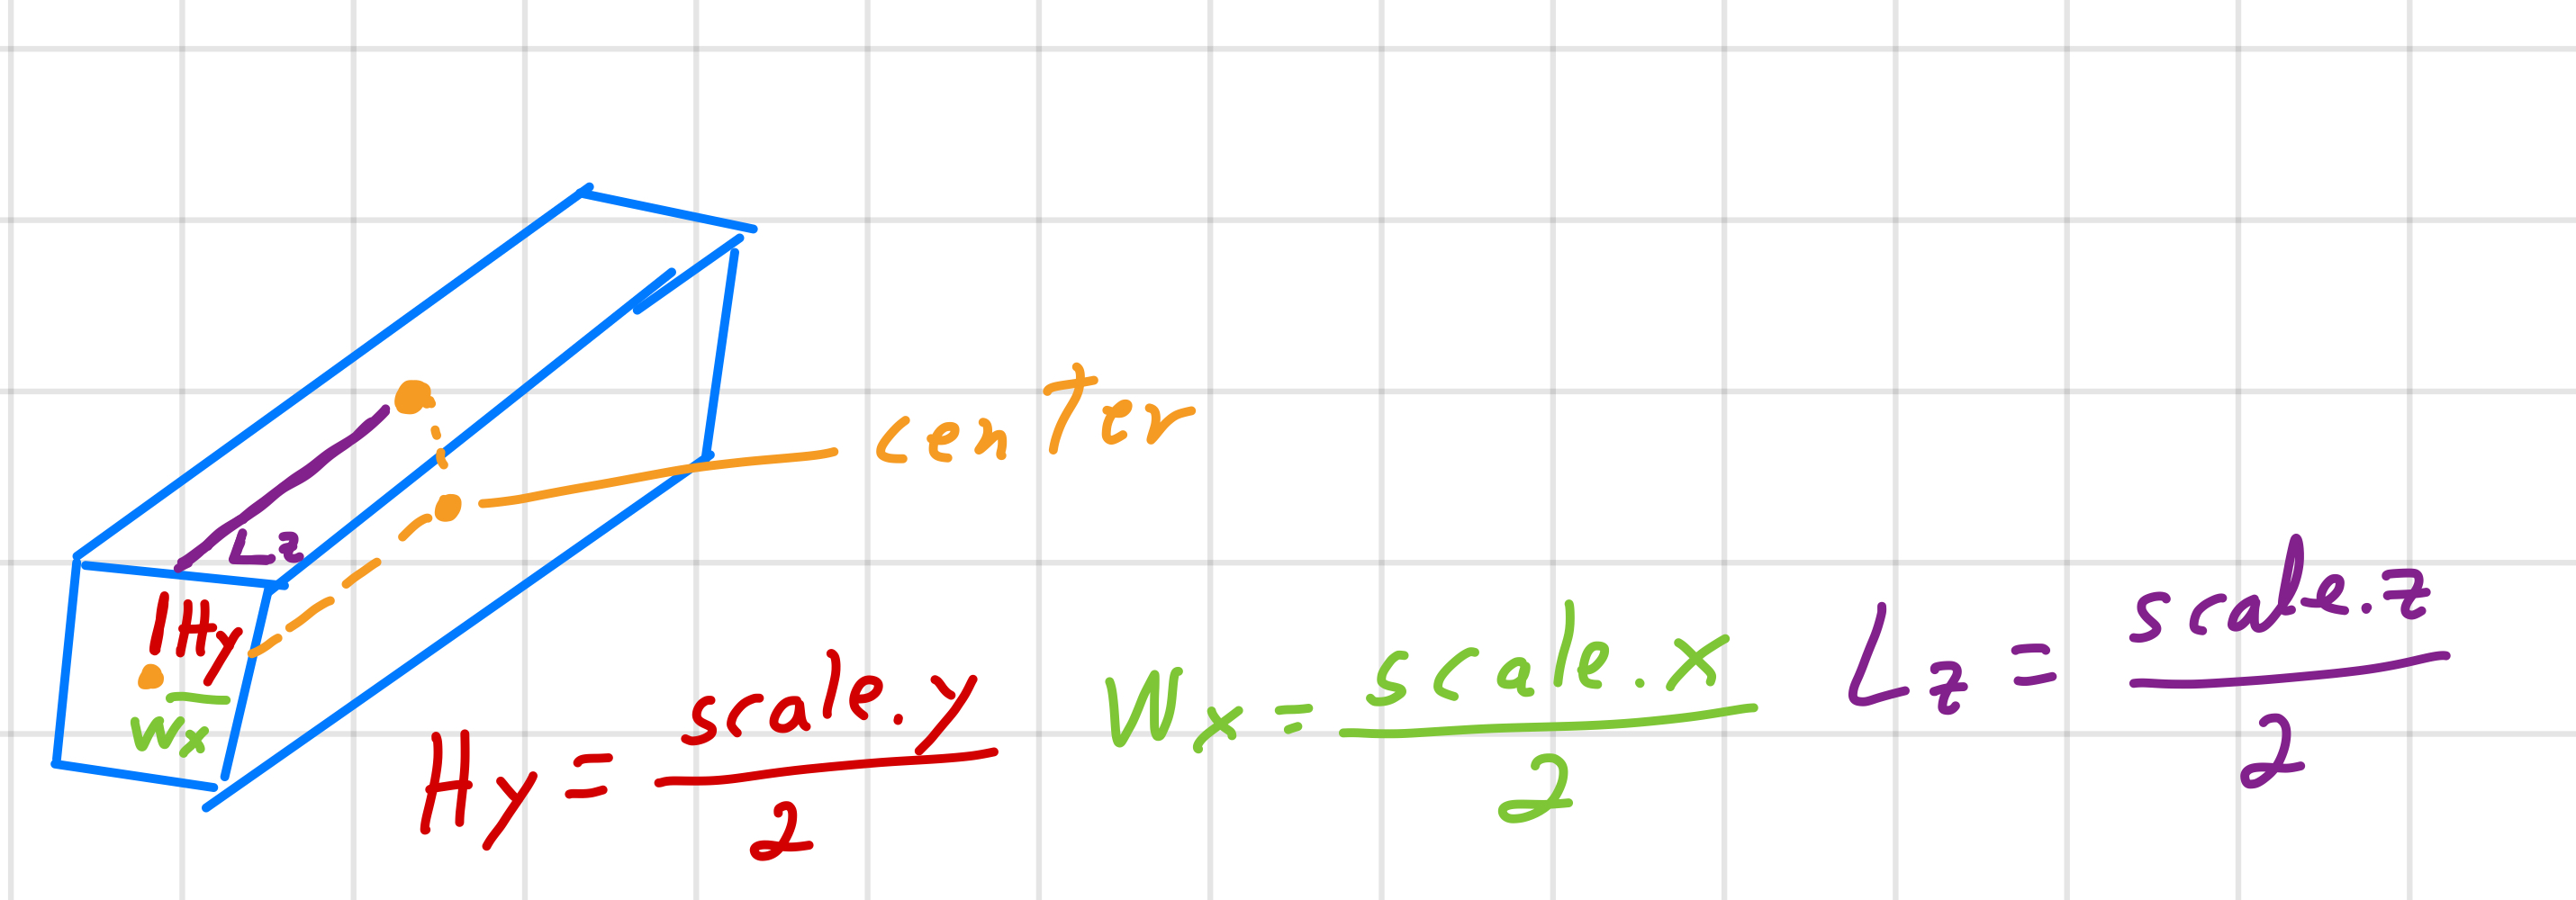 center
Lz
Hy
Wx
Hy = scale.y / 2
Wx = scale.x / 2
Lz = scale.z / 2